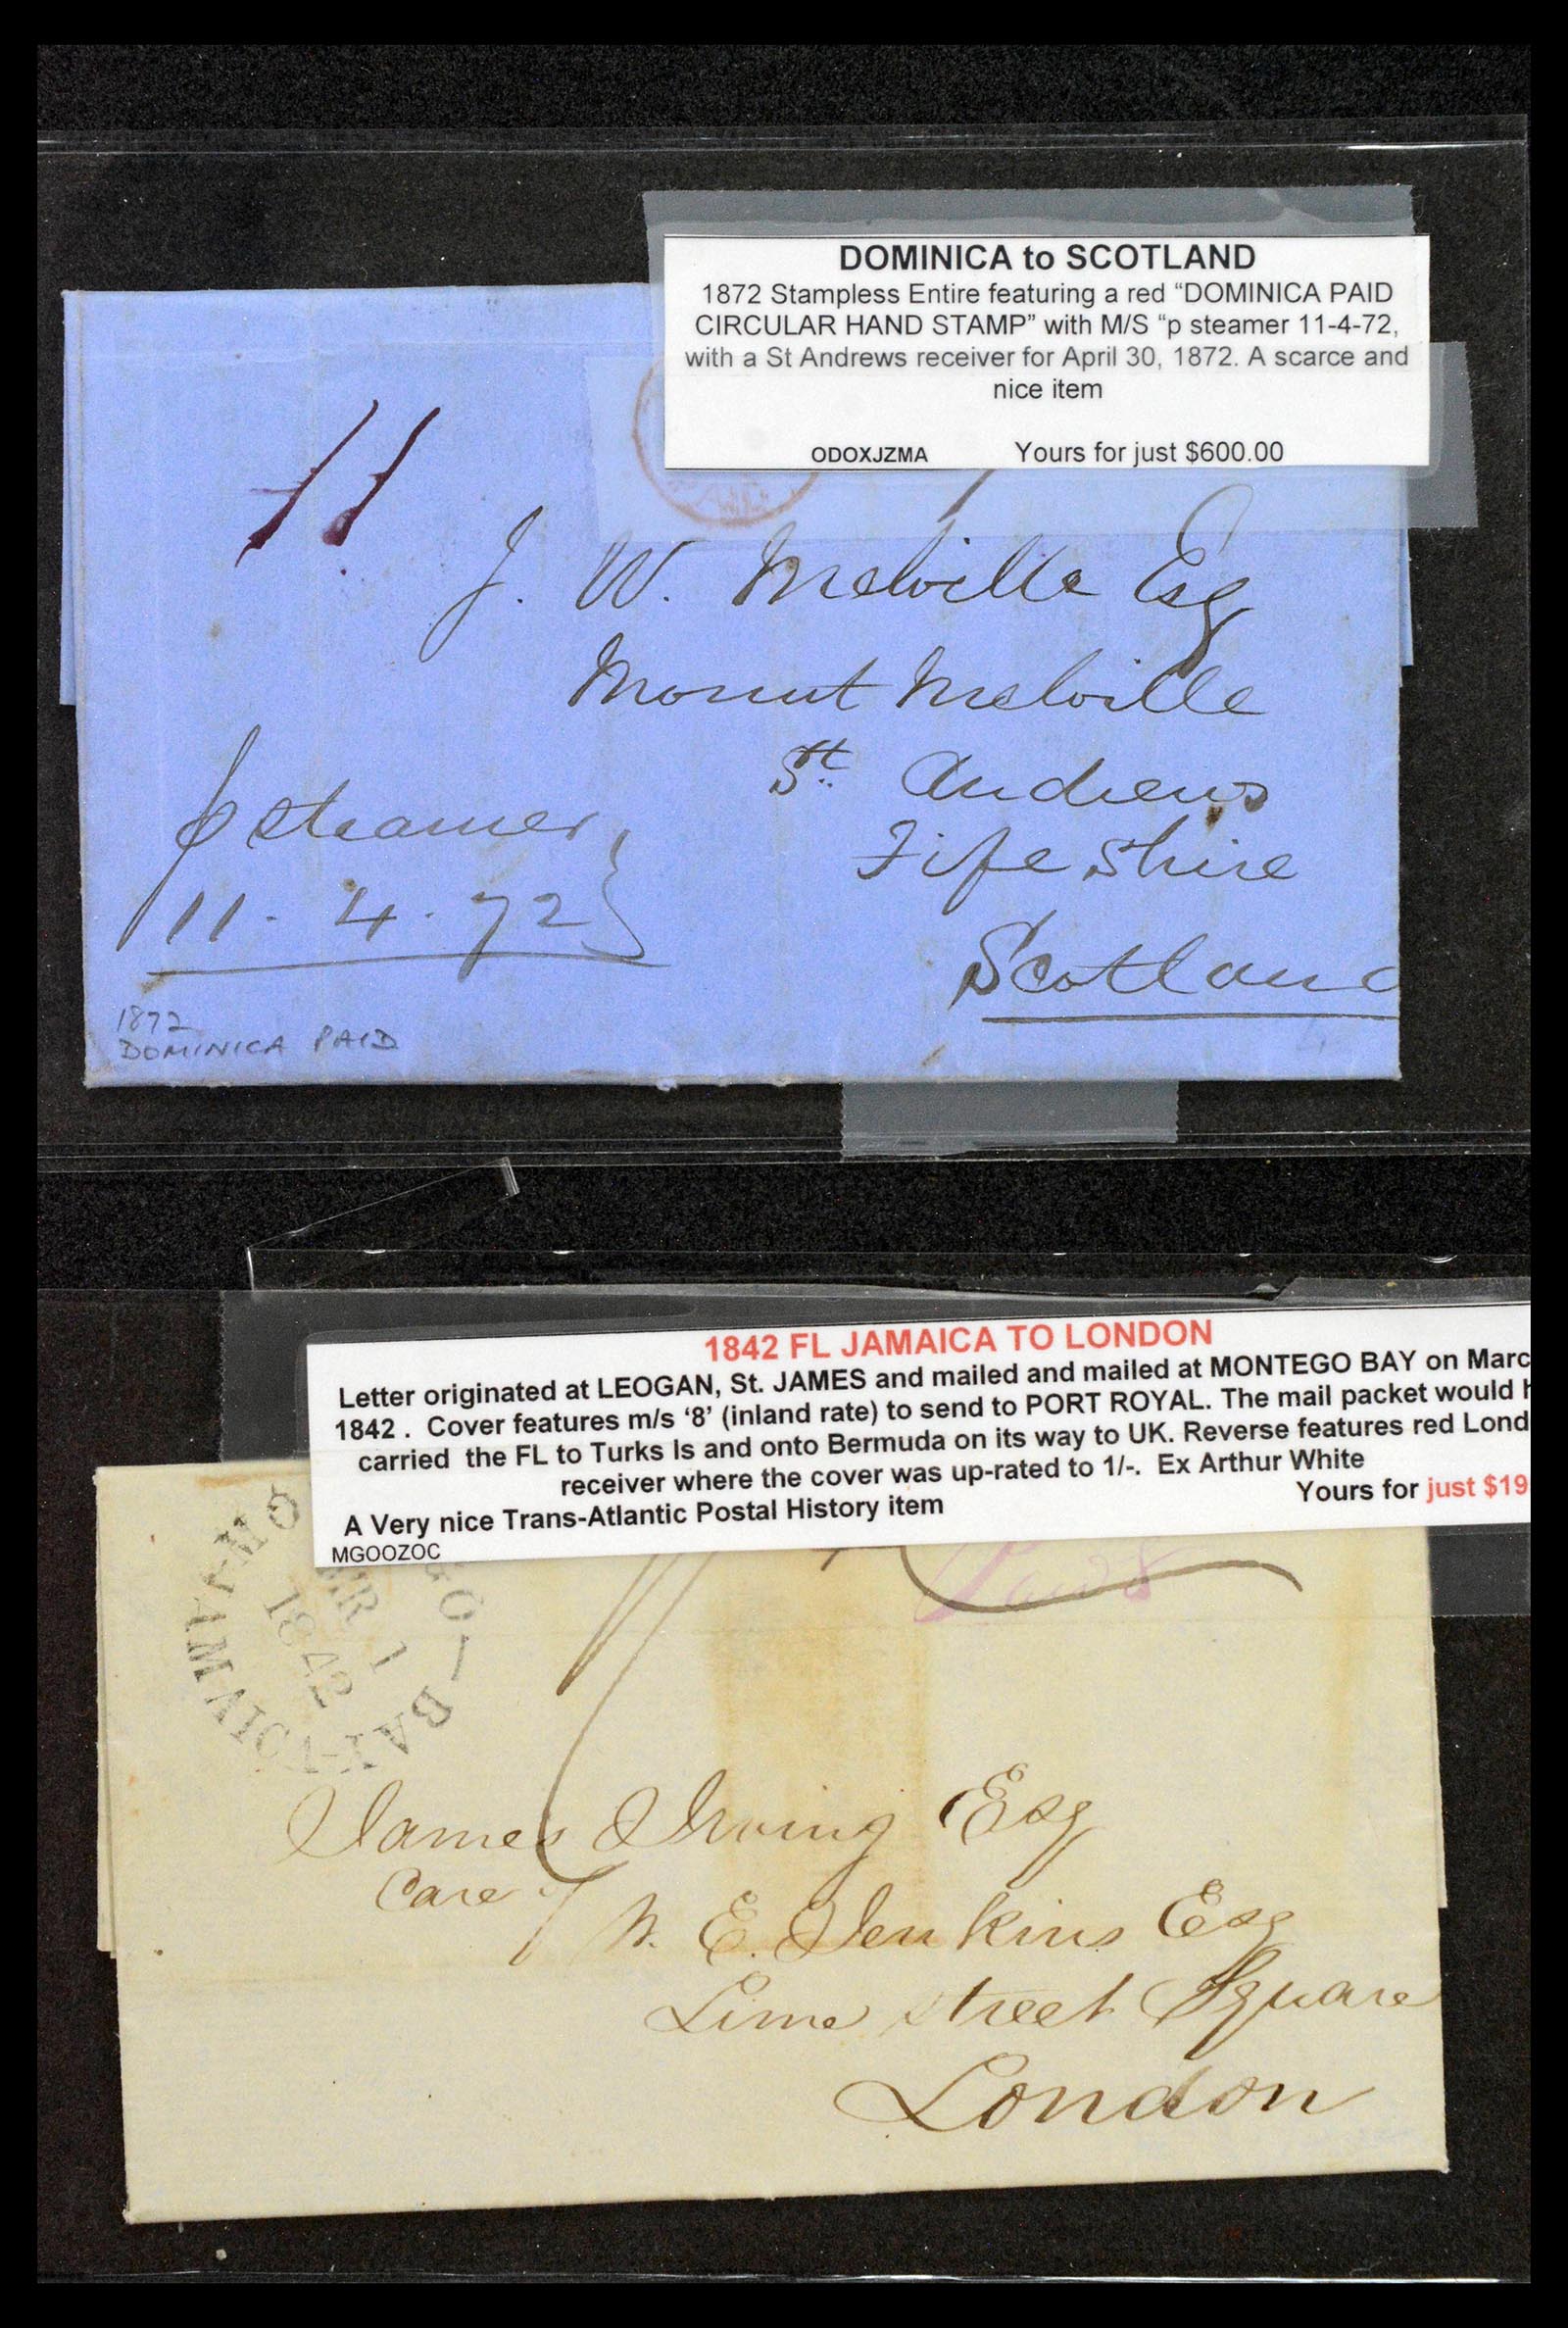 DOMINICA to SCOTLAND
1872 Stampless Entire featuring a red “DOMINICA PAID
CIRCULAR HAND STAMP” with M/S “p steamer 11-4-72,
with a St Andrews receiver for April 30, 1872. A scarce and
nice item
ODOXJZMA Yours for just $600.00
J. W. Melville Esq
Mount Melville
St. Andrews
Fife Shire
Scotland
p steamer
11. 4. 72
1872
DOMINICA PAID
1842 FL JAMAICA TO LONDON
Letter originated at LEOGAN, St. JAMES and mailed and mailed at MONTEGO BAY on Marc
1842 . Cover features m/s ‘8’ (inland rate) to send to PORT ROYAL. The mail packet would h
carried the FL to Turks Is and onto Bermuda on its way to UK. Reverse features red Lond
receiver where the cover was up-rated to 1/-. Ex Arthur White
A Very nice Trans-Atlantic Postal History item Yours for just $19
MGOOZOC
GO BAY
1
1842
JAMAICA
Paid 8
James Irving Esq
Care of
W. E. Jenkins Esq
Lime Street Square
London